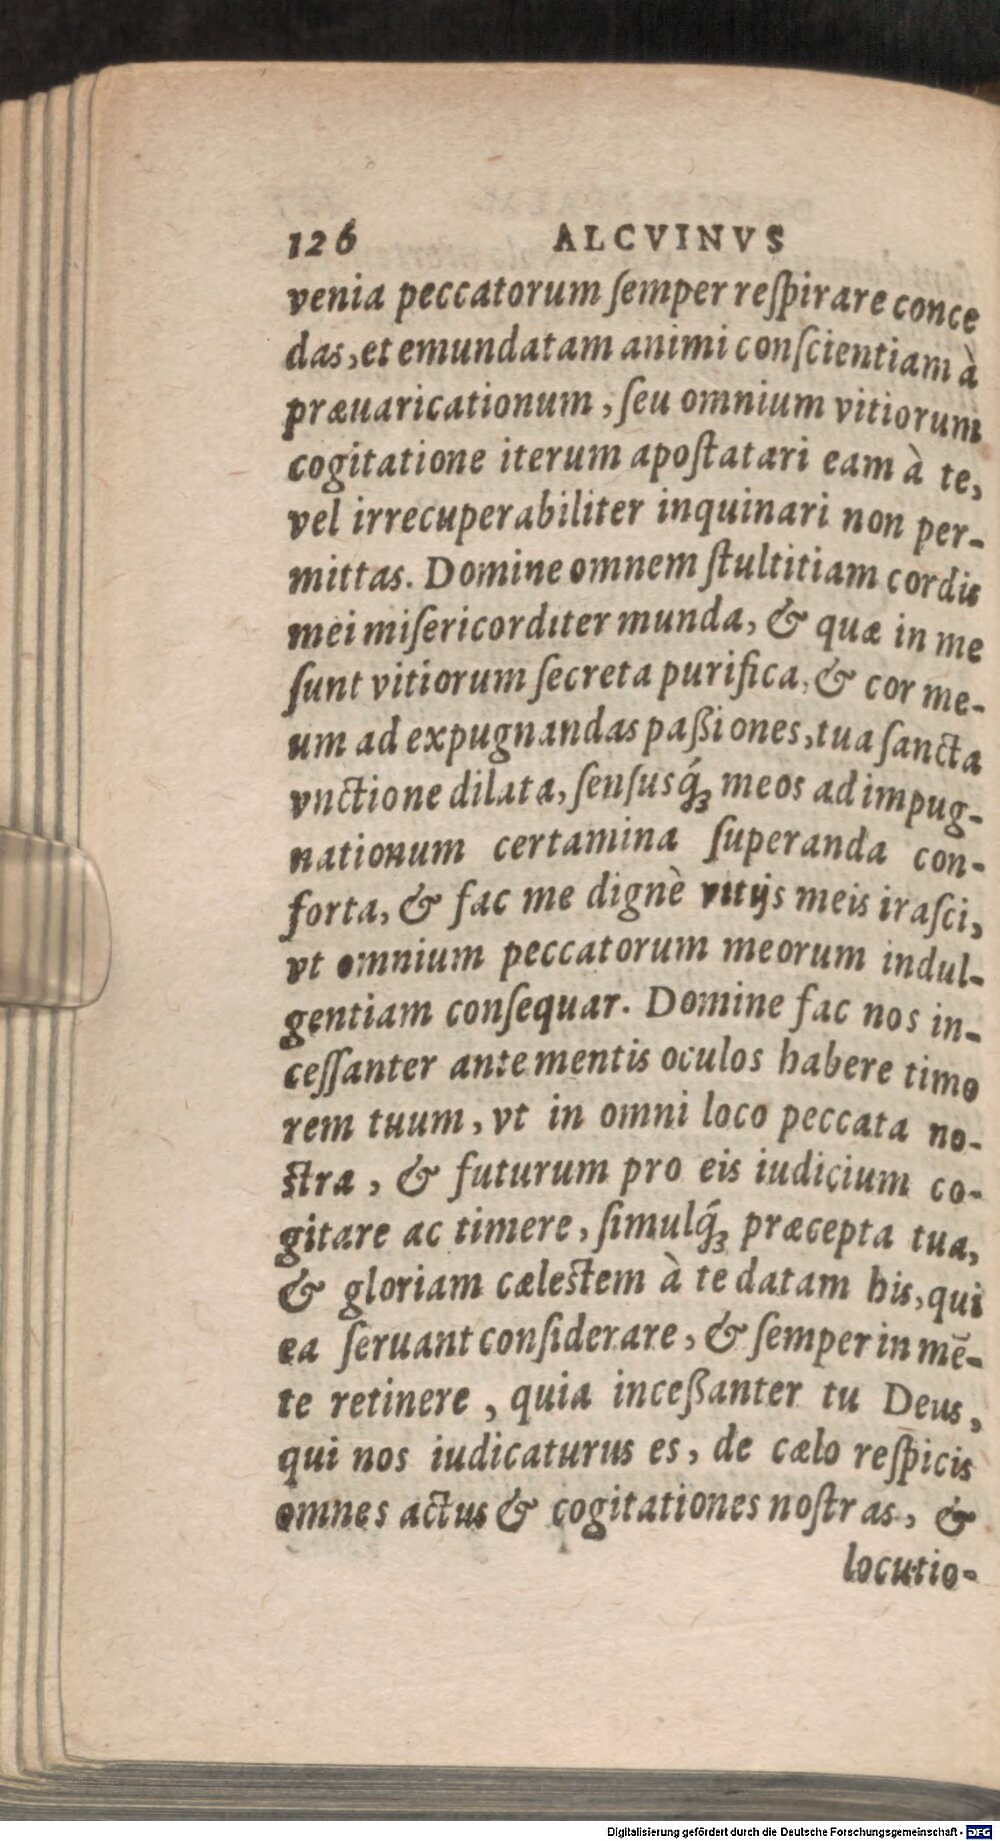 126 ALCVINVS
venia peccatorum ſemper reſpirare conce
das, et emundatam animi conſcientiam à
præuaricationum, ſeu omnium vitiorum
cogitatione iterum apoſtatari eam à te,
vel irrecuperabiliter inquinari non per-
mittas. Domine omnem ſtultitiam cordis
mei miſericorditer munda, & quæ in me
ſunt vitiorum ſecreta purifica, & cor me-
um ad expugnandas paßiones, tua ſancta
vnctione dilata, ſenſusq́ꝫ meos ad impug-
nationum certamina ſuperanda con-
forta, & fac me dignè vitijs meis iraſci,
vt omnium peccatorum meorum indul-
gentiam conſequar. Domine fac nos in-
ceſſanter ante mentis oculos habere timo
rem tuum, vt in omni loco peccata no-
ſtra, & futurum pro eis iudicium co-
gitare ac timere, ſimulq́ꝫ præcepta tua,
& gloriam cæleſtem à te datam his, qui
ea ſeruant conſiderare, & ſemper in mē-
te retinere, quia inceßanter tu Deus,
qui nos iudicaturus es, de cælo reſpicis
omnes actus & cogitationes noſtras, &
locutio-
Digitalisierung gefördert durch die Deutsche Forschungsgemeinschaft - DFG